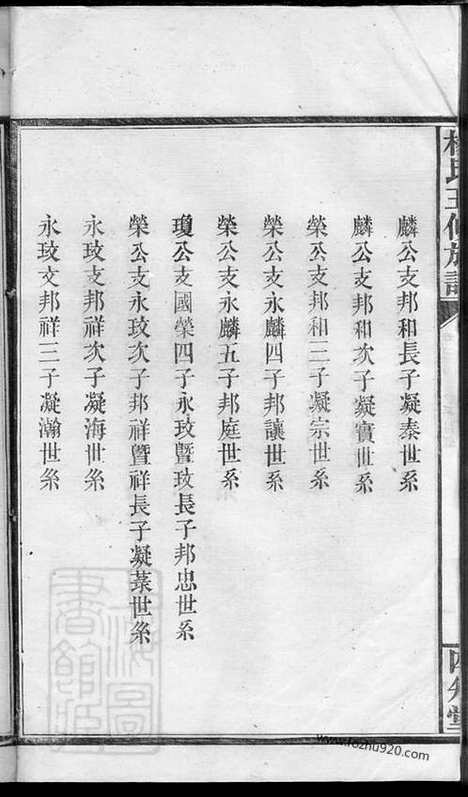 麟公支邦和長子凝泰世系
麟公支邦和次子凝寶世系
榮公支邦和三子凝宗世系
榮公支永麟四子邦讓世系
榮公支永麟五子邦庭世系
瓊公支國榮四子永玟暨玟長子邦忠世系
榮公支永玟次子邦祥暨祥長子凝菉世系
永玟支邦祥次子凝海世系
永玟支邦祥三子凝瀚世系
氏五修族譜
四知堂
www.fozhu920.com